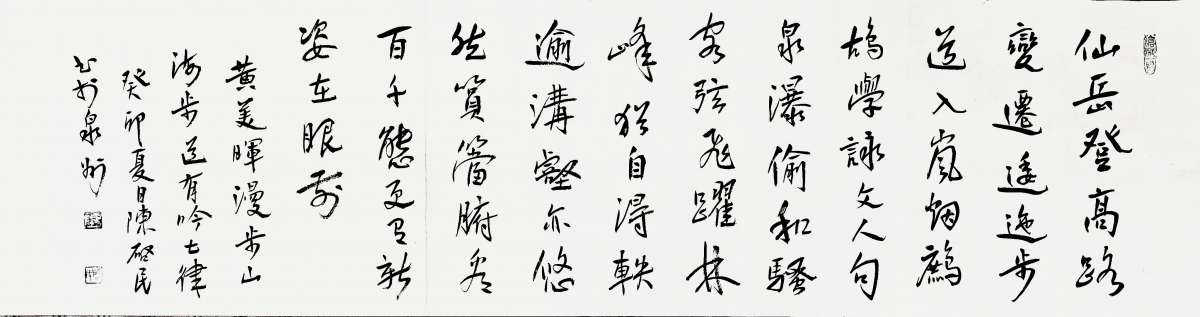 仙岳登高路
變遷逶迤步
道入嵐烟鷓
鴣學詠文人句
泉瀑偷和騷
客弦飛躍林
峰猶自得軼
逾溝壑亦悠
然篔簹俯看
百千態更有新
姿在眼前
黄美暉漫步山
海步道有吟七律
癸卯夏日陳啓民
書於泉州